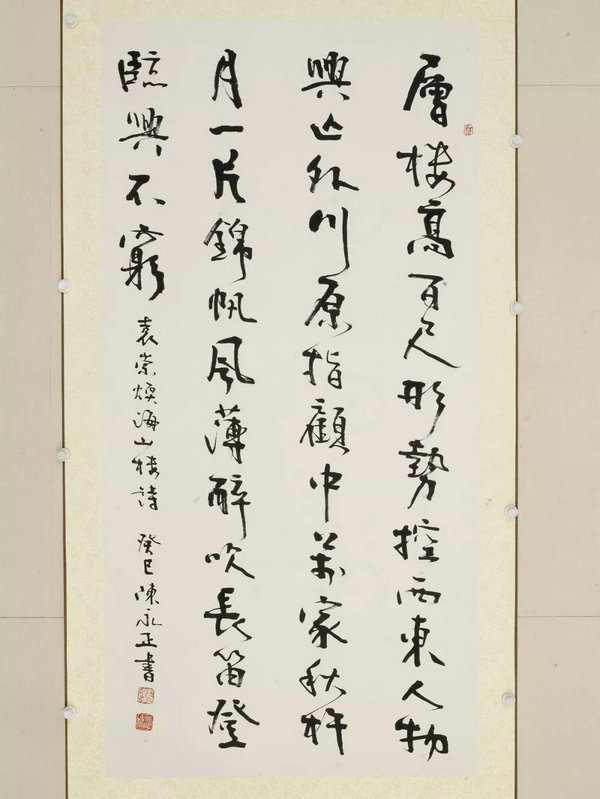 層樓高百尺形勢控西東人物
興亡外川原指顧中萬家秋杵
月一片錦帆風薄醉吹長笛登
臨興不窮
袁崇煥海山樓詩 癸巳陳永正書